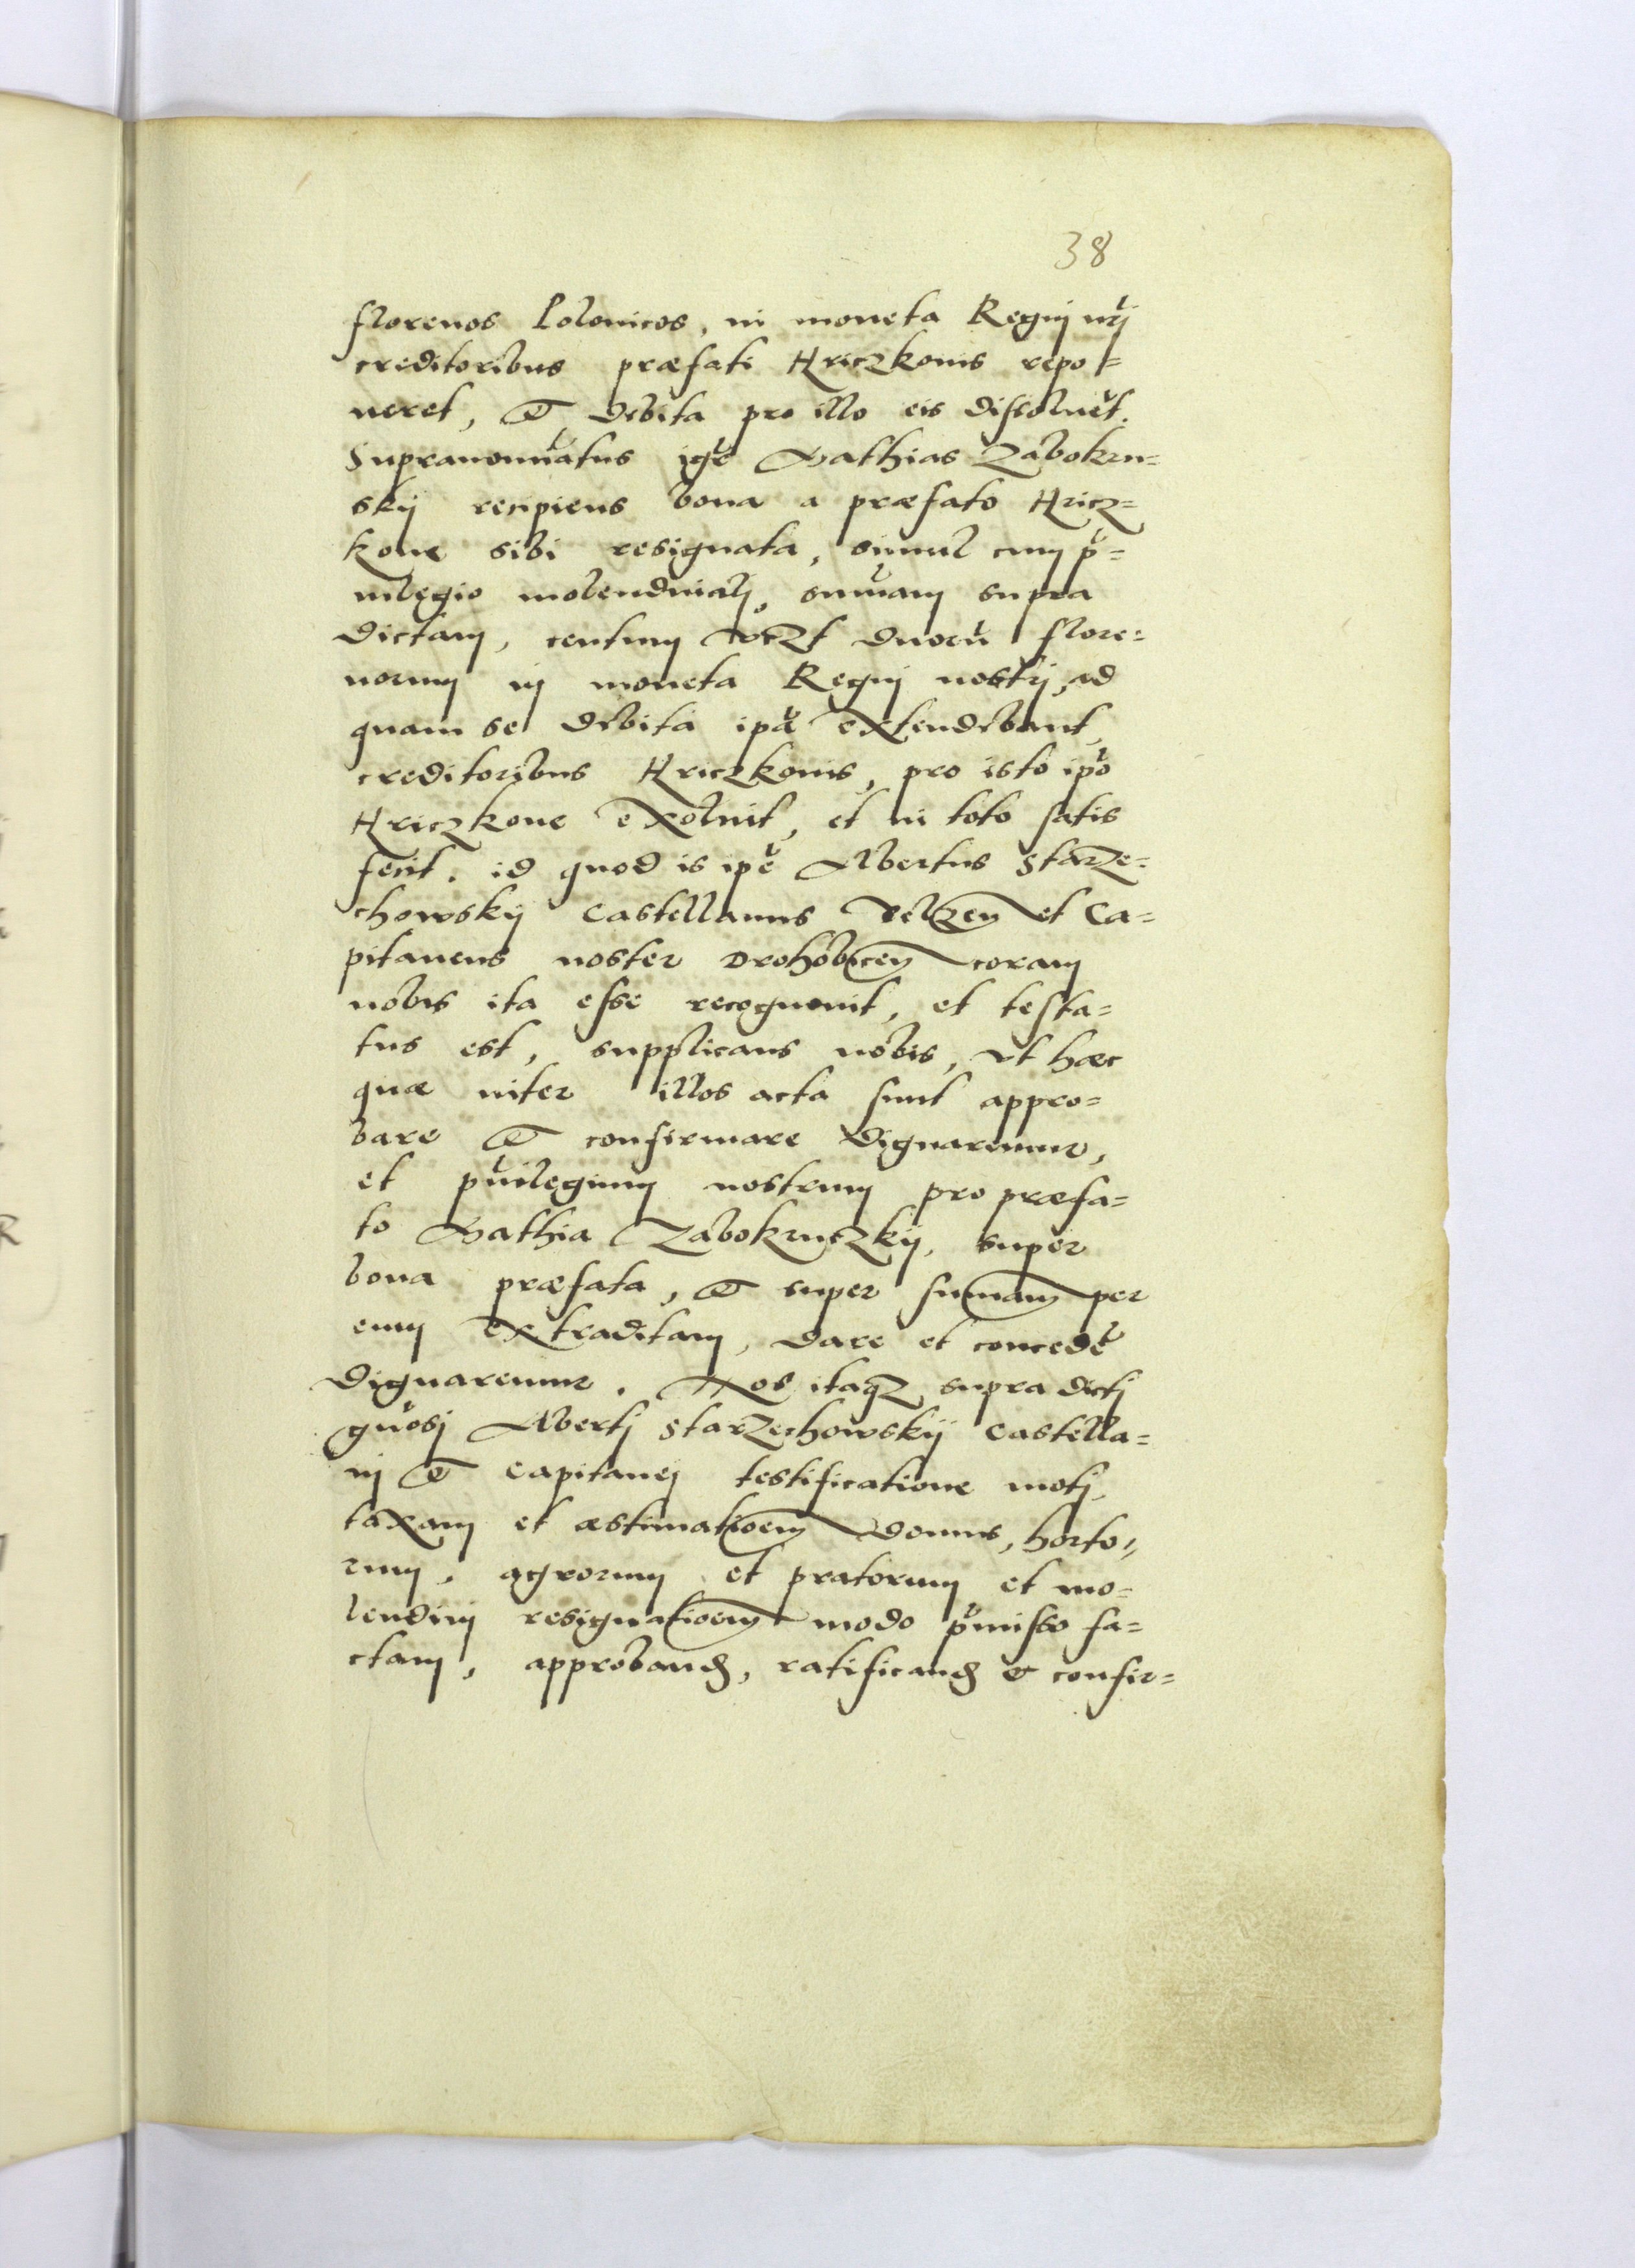 38
florenos Polonicos, in moneta Regnj nrj
creditoribus præfati Hriczkonis repo=
neret, et debita pro illo eis dissoluet.
Supranominatus igr Mathias Zabokru=
skij recipiens bona a præfato Hricz=
kone sibi resignata, simul cum pri=
uilegio molendinalj, summam supra
dictam, centum vczt duorum flore=
norum in moneta Regnj nostrj, ad
quam se debita ipa extendebant,
creditoribus Hriczkonis, pro isto ipo
Hriczkone exoluit, et in toto satis
fecit. id quod is ipe Albertus Starze=
chowskij Castellanus Belzen et Ca=
pitaneus noster Drohobicen coram
nobis ita esse recognouit, et testa=
tus est, supplicans nobis, vt hæc
quæ inter illos acta sunt appro=
bare et confirmare dignaremur,
et priuilegium nostrum pro præfa=
to Mathia Zabokruczkij, super
bona præfata, et super summam per
eum extraditam, dare et concedere
dignaremur. Nos itaqz supra dictj
gnosj Albertj Starzechowskij Castella=
nj et Capitanej testificatione motj,
taxam et æstimationem domus, horto=
rum, agrorum et pratorum et mo=
lendinj resignationem modo præmisso fa=
ctam, approband, ratificand & confir=